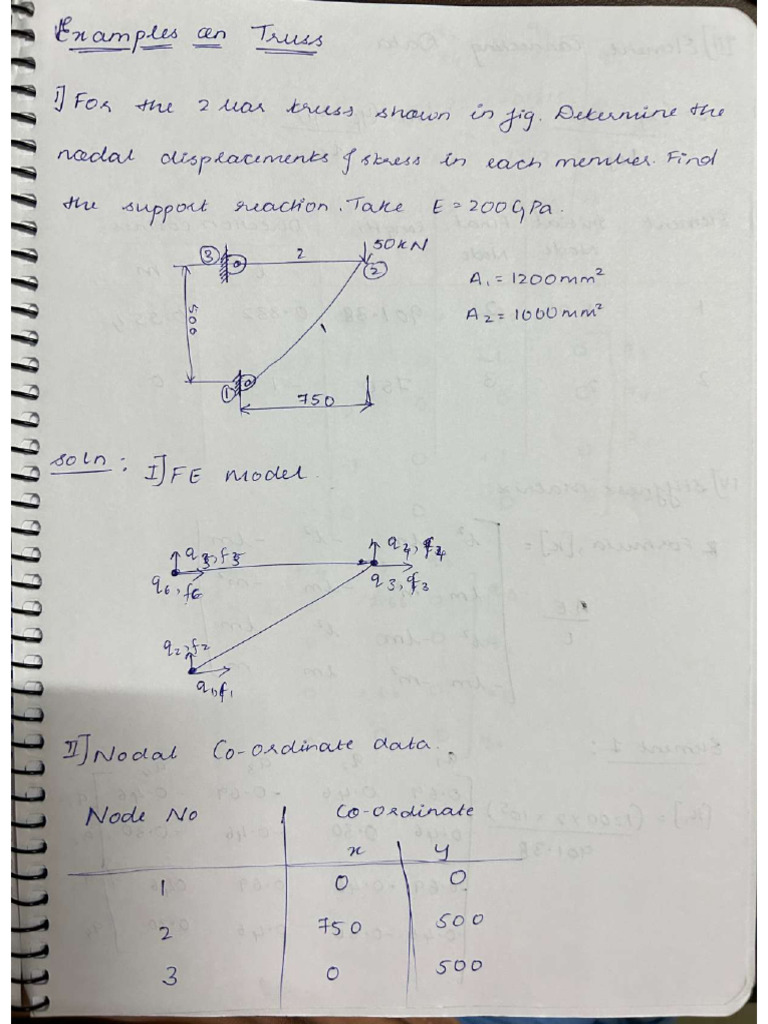 Examples on Truss
1] For the 2 bar truss shown in fig. Determine the
nodal displacements & stress in each member. Find
the support reaction. Take E = 200GPa.
50kN
3 2 2
A1 = 1200mm²
500 1
A2 = 1000mm²
1
750
soln : I] FE model.
q5, f5 q4, f4
q6, f6 q3, f3
q2, f2
q1, f1
II] Nodal Co-ordinate data.
Node No Co-ordinate
x y
1 0 0
2 750 500
3 0 500